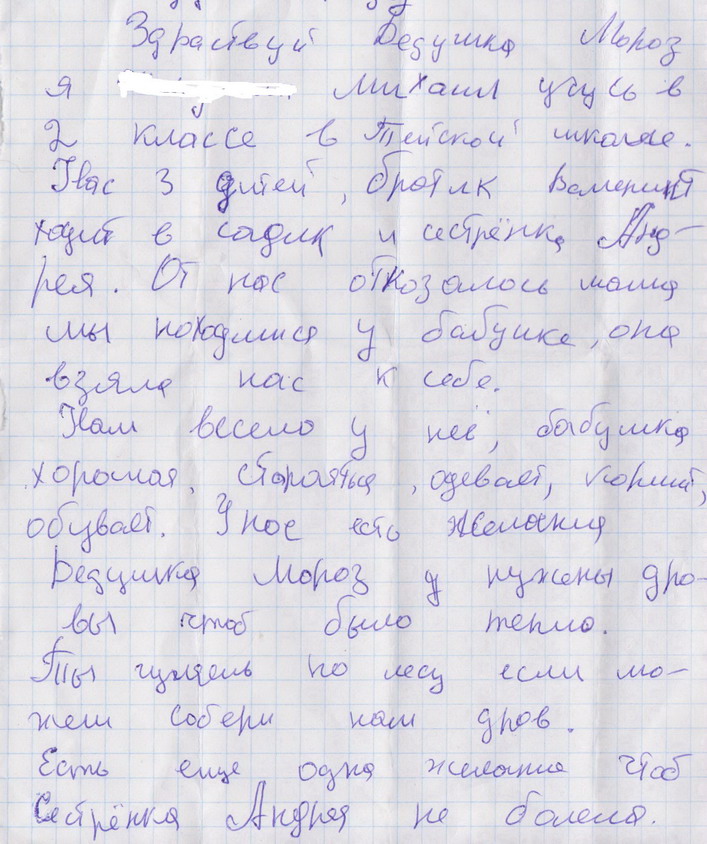 Здраствуй Дедушка Мороз
я Михаил учусь в
2 классе в Тейской школе.
Унас 3 дитей, братик Валерият
ходит в садик и сестрёнка Анд-
рея. От нас отказалось мама
мы находимися у бабушке, она
взяла нас к себе.
Нам весело у неё, бабушка
хорошая, старатца, одевает, кормит,
обувает. У нас есть желания
Дедушка Мороз у нужены дро-
вы чтоб было тепло.
Ты гуляешь по лесу если мо-
жеш собери нам дров.
Есть еще одна желания чтоб
Сестрёнка Андрея не болела.